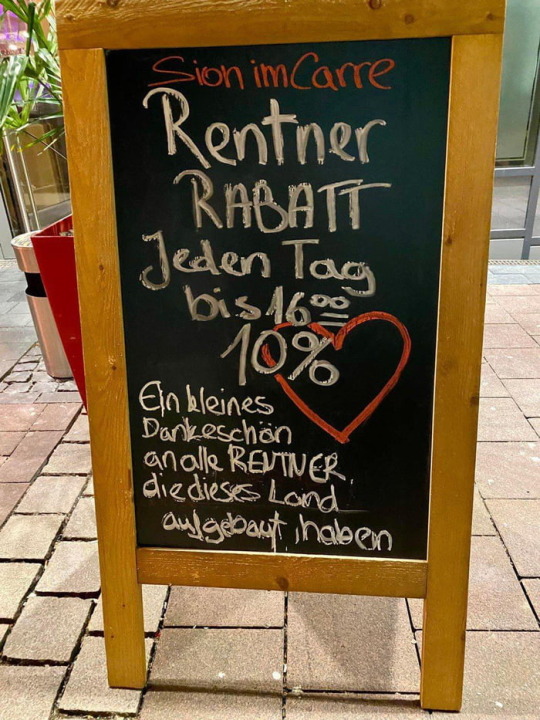 Sion im Carre
Rentner
RABATT
Jeden Tag
bis 16⁰⁰
10%
Ein kleines
Dankeschön
an alle RENTNER,
die dieses Land
aufgebaut, haben